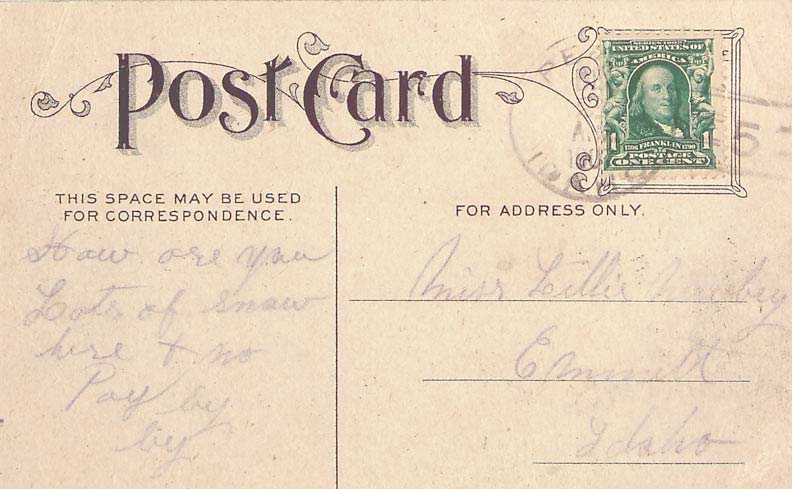 Post Card
SERIES 1902
UNITED STATES OF
AMERICA
1 1
1706 FRANKLIN 1790
POSTAGE
ONE CENT
THIS SPACE MAY BE USED
FOR CORRESPONDENCE.
How are you
Lots of snow
here & no
Pay by
by
FOR ADDRESS ONLY.
Miss Lillie
Emmett
Idaho